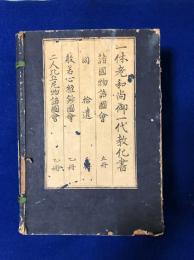 一休老和尚御一代教化書
諸國物語圖會 五册
同 拾遺
般若心經鈔圖會 乙册
二人比丘尼物語圖會 乙册